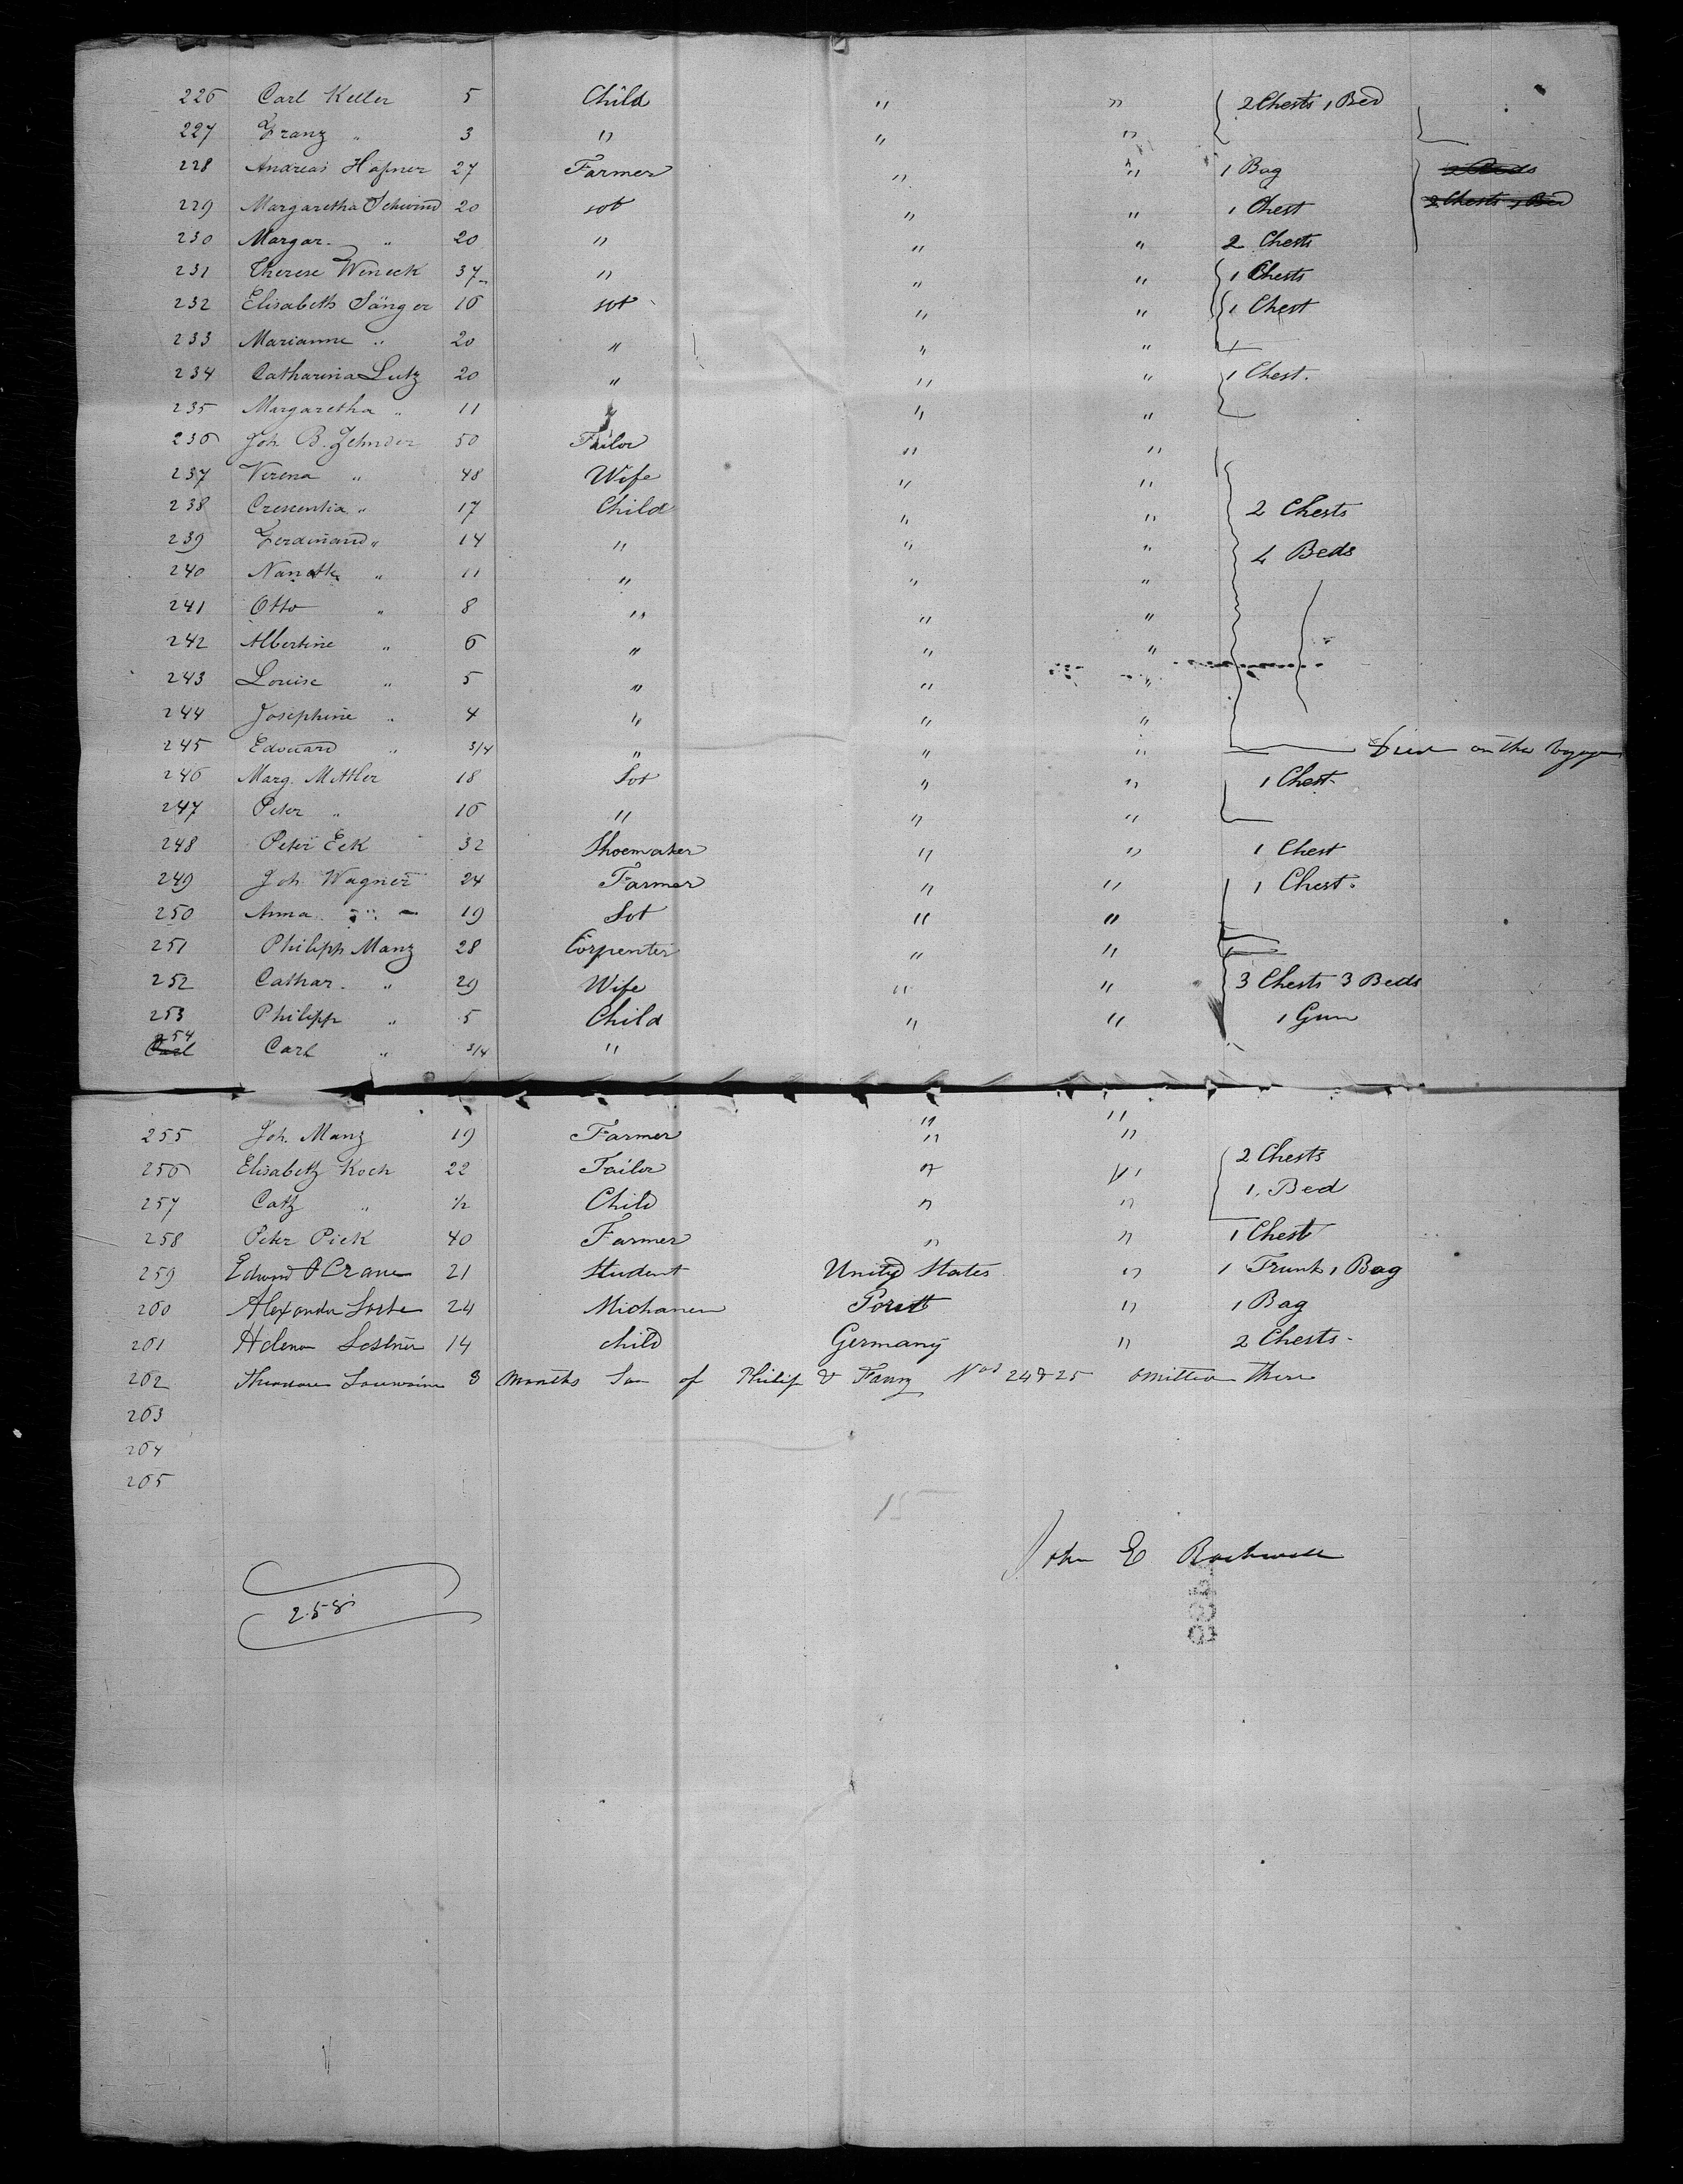 226 Carl Keller 5 Child " " 2 Chests 1 Bed
227 Franz " 3 " " "
228 Andreas Hafner 27 Farmer " " 1 Bag
229 Margaretha Schwind 20 sot " " 1 Chest 2 Chests 1 Bed
230 Margar. " 20 " " " 2 Chests
231 Therese Wineck 37 " " " 1 Chests
232 Elisabeth Sänger 16 sot " " 1 Chest
233 Marianne " 20 " " "
234 Catharina Lutz 20 " " " 1 Chest.
235 Margaretha " 11 " "
236 Joh. B. Zehnder 50 Tailor " "
237 Verena " 48 Wife " "
238 Crescentia " 17 Child " " 2 Chests
239 Ferdinand " 14 " " " 4 Beds
240 " 11 " " "
241 Otto " 8 " " "
242 Albertine " 6 " " "
243 Louise " 5 " " "
244 Josephine " 4 " " "
245 Edouard " 3/4 " " " Died on the Voyage
246 Marg. Mittler 18 Sot " " 1 Chest
247 Peter " 16 " " "
248 Peter Eck 32 Shoemaker " " 1 Chest
249 Joh. Wagner 24 Farmer " " 1 Chest.
250 Anna " 19 Sot " "
251 Philipp Manz 28 Corpenter " "
252 Cathar. " 29 Wife " " 3 Chests 3 Beds
253 Philipp " 5 Child " " 1 Gun
254 Carl Carl " 3/4 " " "
255 Joh. Manz 19 Farmer " "
256 Elisabeth Koch 22 Tailor " " 2 Chests
257 Cath " 1/2 Child " " 1 Bed
258 Peter Pick 40 Farmer " " 1 Chest
259 Edwund Crane 21 Student United States " 1 Trunk 1 Bag
260 Alexander 24 " 1 Bag
261 Helena 14 child Germany " 2 Chests
262 Theodore 8 Months Son of Philip & Fanny Nos 24 & 25 omitted there
263
264
265
15
John E Rockwell
258